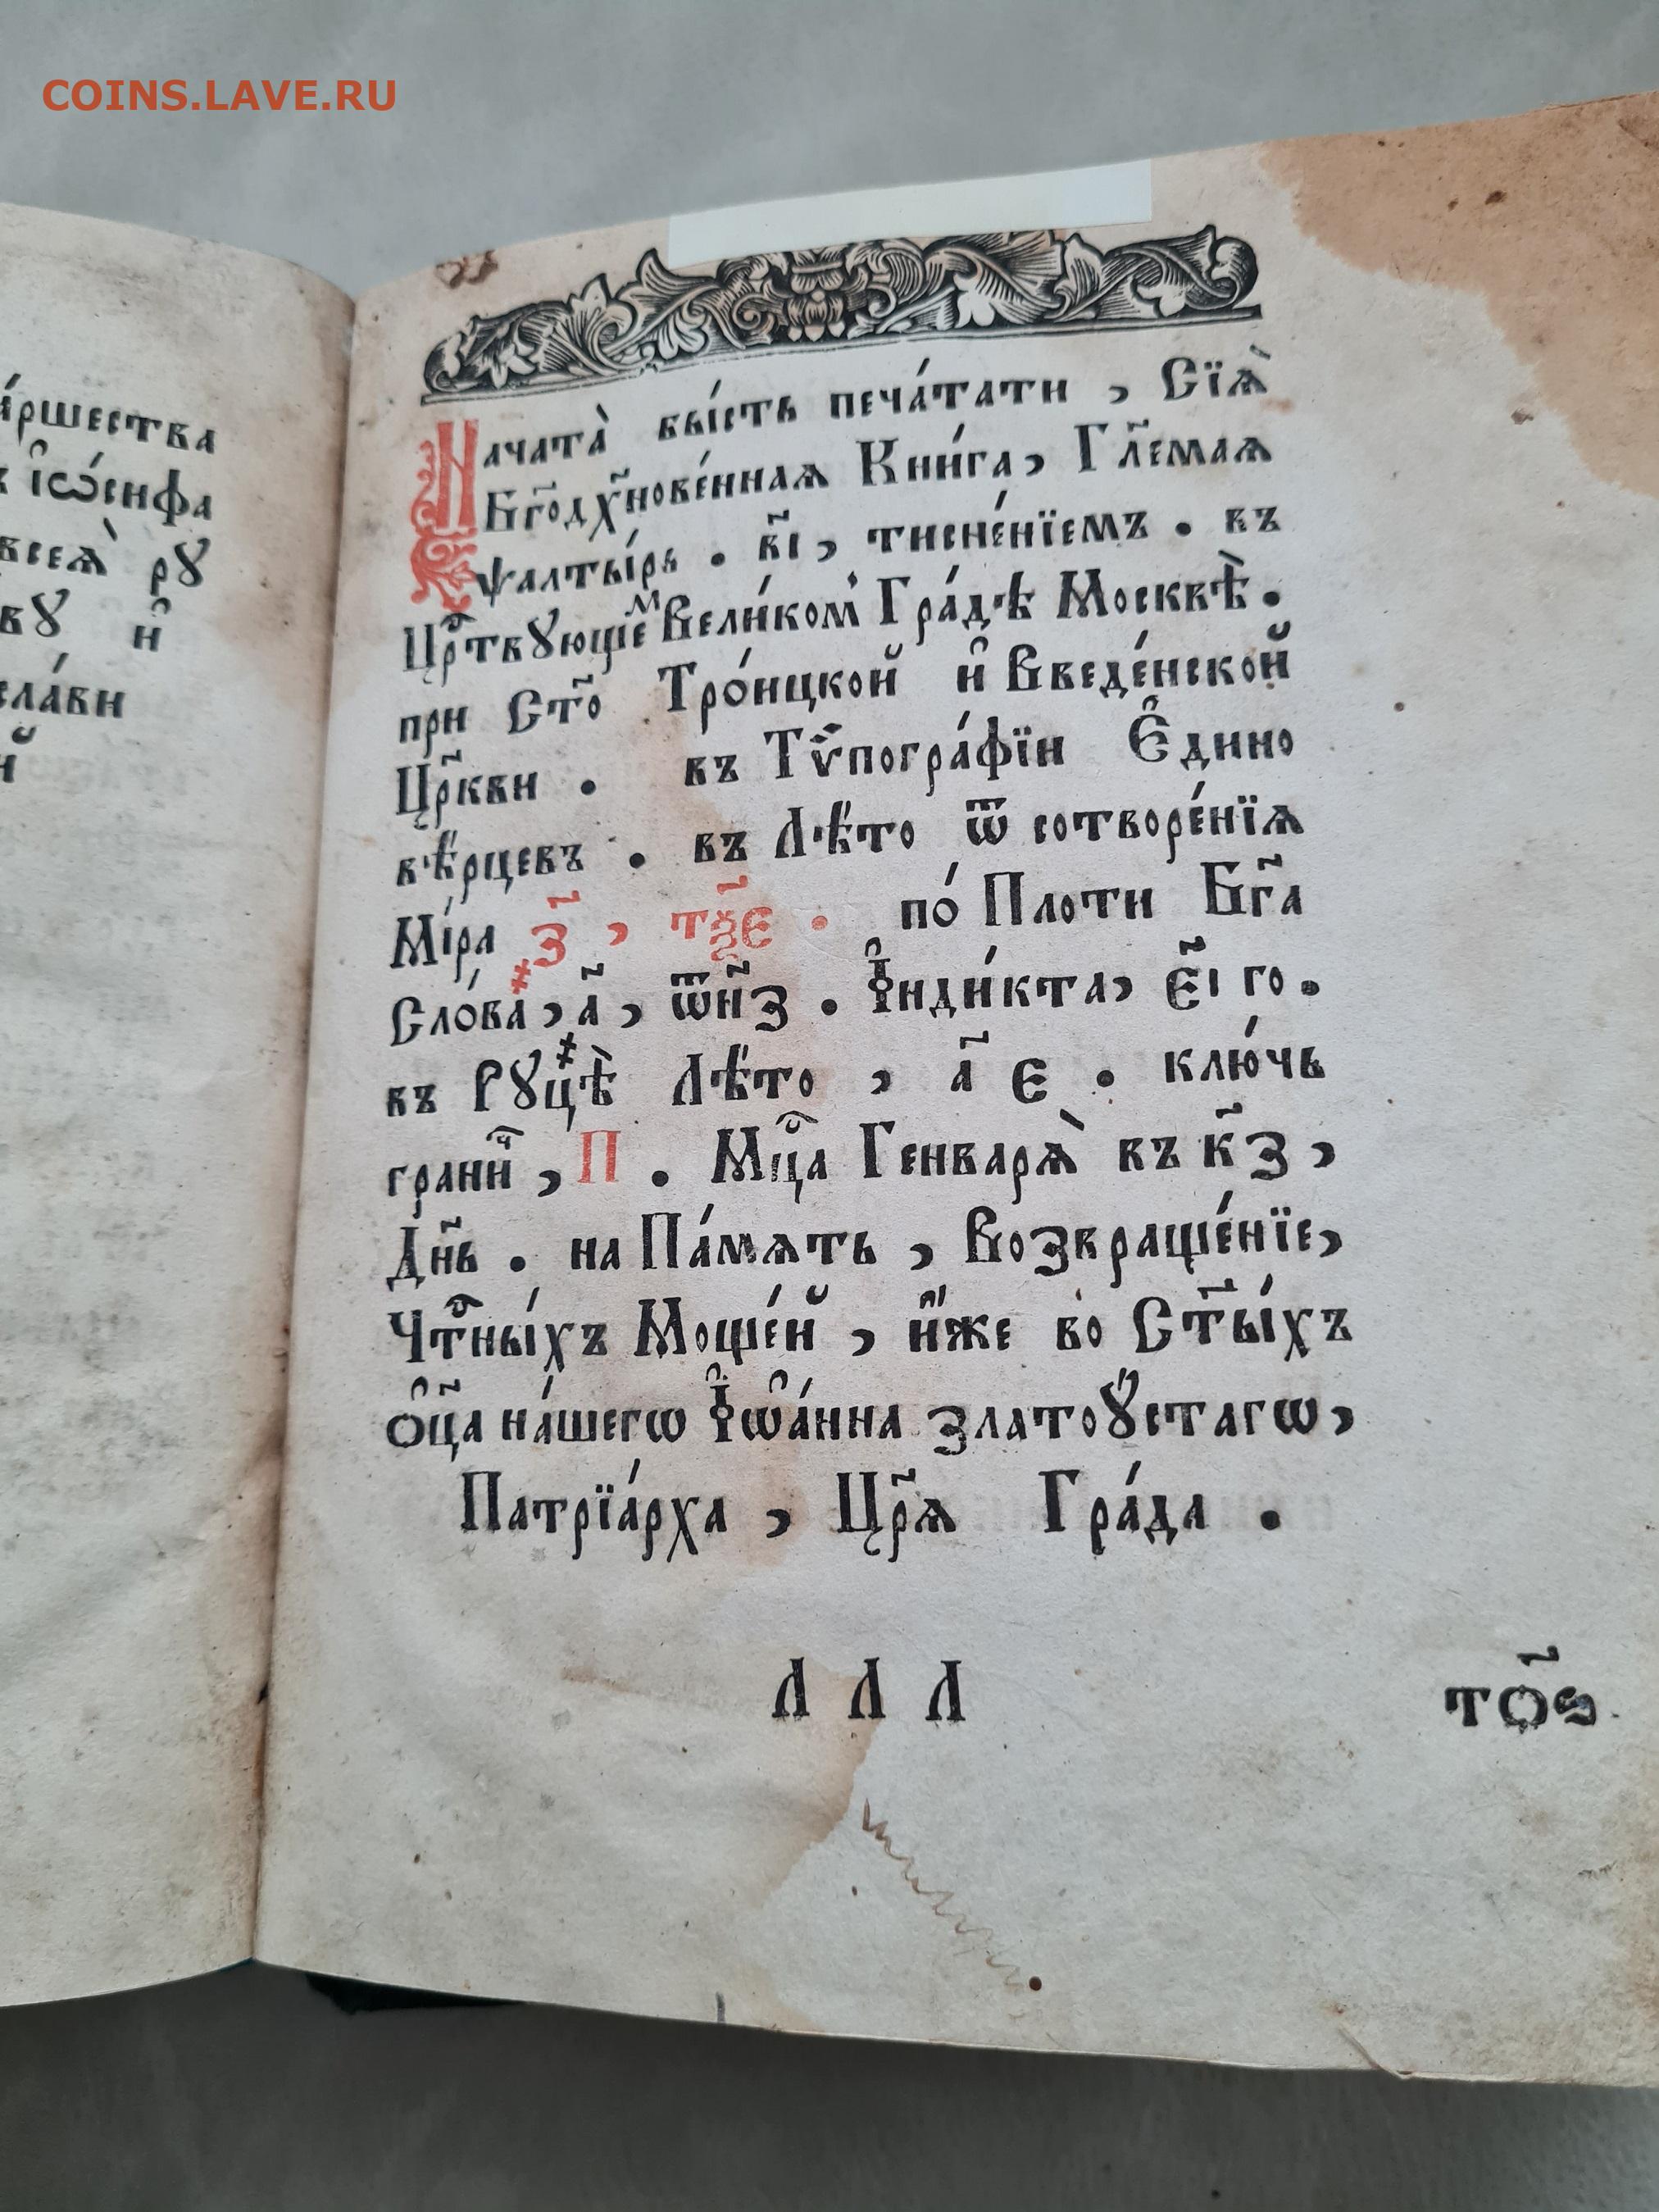 COINS.LAVE.RU
а́ршества
і҆ѡ́сифа
всеѧ̀ рꙋ
вꙋ и҆
сла́ви
й
Начата̀ бы́сть печа́тати , Сїѧ̀
Бг҃одх҃нове́ннаѧ Кни́га , Гл҃емаѧ
ѱалты́рь . в҃і , тисне́нїемъ . въ
Црⷭ҇твꙋющеⷨ Вели́комъ Гра́дѣ Москвѣ̀ .
при Ст҃о Тро́ицкой и҆ Введе́нской
Цр҃кви . въ Тѷпогра́фїи Є҆дино
вѣ́рцевъ . въ Лѣ́то ѿ сотворе́нїѧ
Мі́ра ҂з҃ , то҃є . по́ Плоти Бг҃а
Сло́ва , ҂а҃ , ѿи҃з . І҆нди́кта , є҃і го .
въ Рꙋцѣ̀ Лѣ́то , а҃ є . клю́чь
граниⷱ҇ , П . Мцⷭ҇а Генварѧ̀ въ к҃з ,
Дн҃ь . на Па́мѧть , Возвраще́нїе ,
Чтⷭ҇ны́хъ Моще́й , и҆́же во Ст҃ы́хъ
ѻ҆ц҃а на́шегѡ І҆ѡа́нна златоꙋ́стагѡ ,
Патрїа́рха , Цр҃ѧ Гра́да .
Л Л Л
тѻ҃ѕ